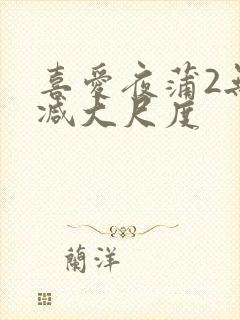 喜愛夜蒲2無
减大尺度
蘭洋